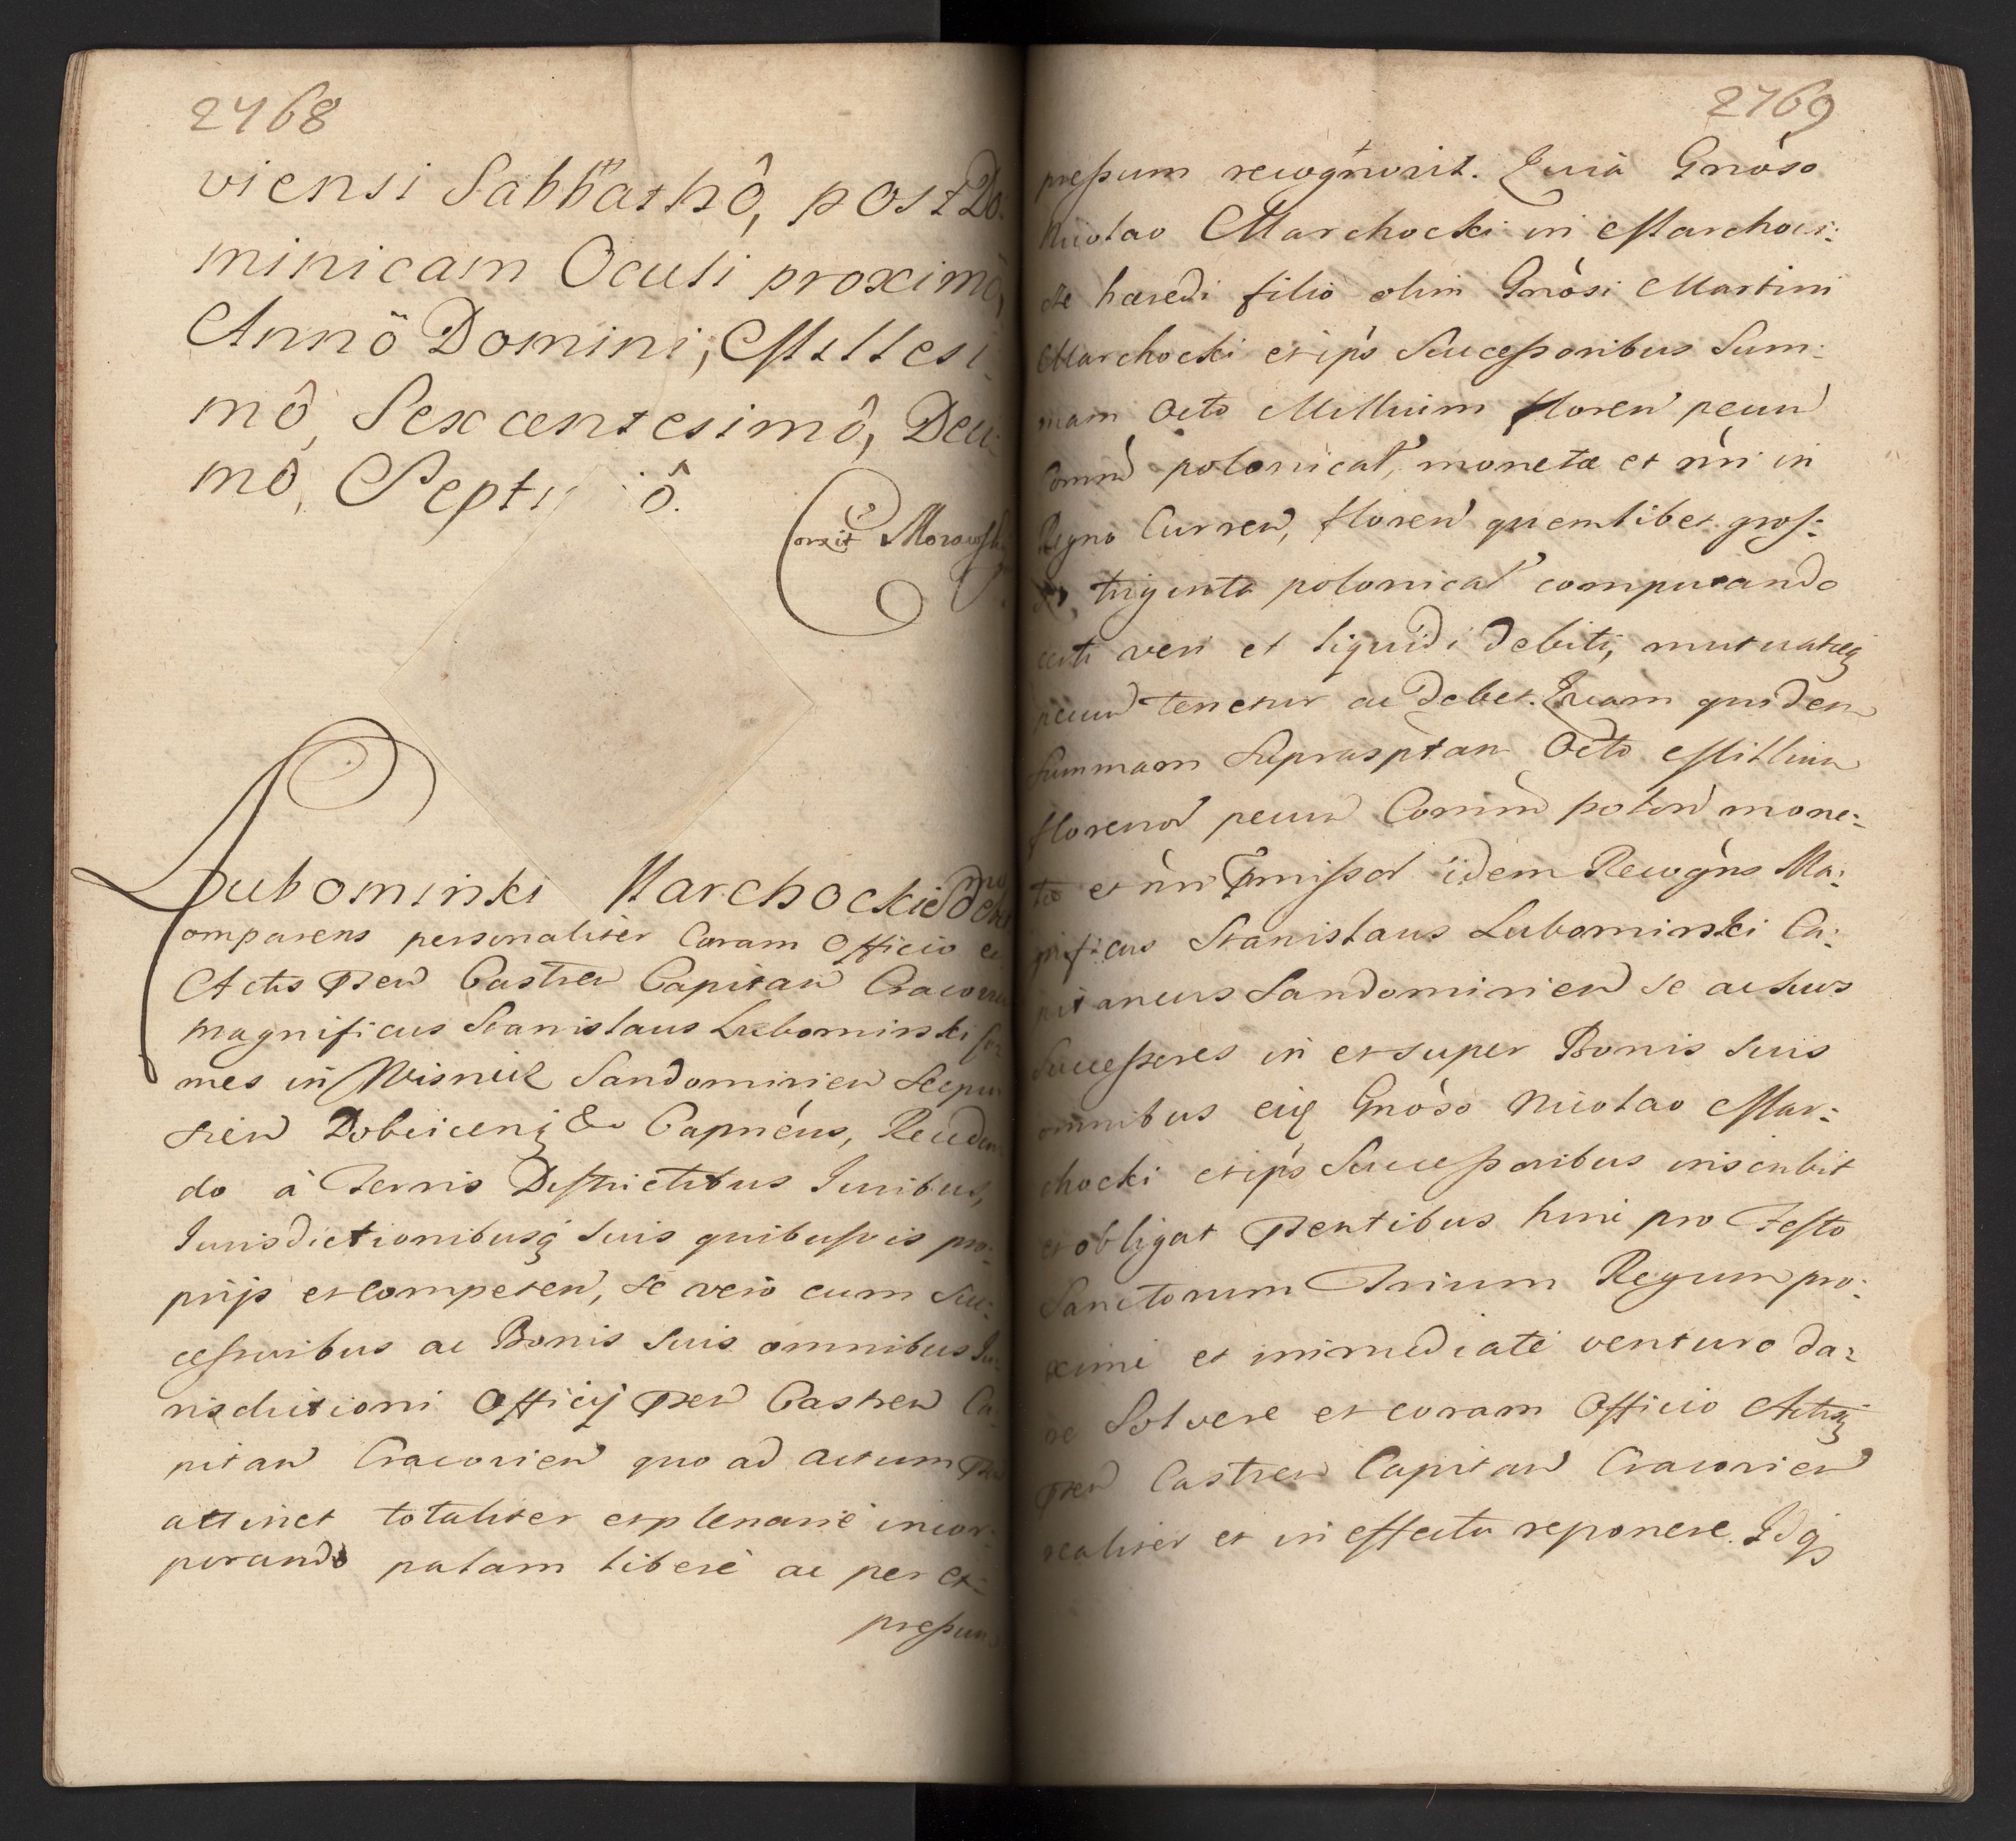 2768
viensi Sabbathô, post Do-
minicam Oculi proximô,
Annô Domini, Millesi-
mô, Sexcentesimô, Deci-
mô, Septi ô.
Corxit Morawski
Lubomirski Marchocki debet
Comparens personaliter Coram Officio et
Actis pñtń Castreń Capitań Cracovień
Magnificus Stanislaus Lubomirski Co-
mes in Wisnicz Sandomirień Scepu-
sień Dobcicenq̃ & Capnéus, Receden-
do à Terris Districtibus Iuribus,
Iurisdictionibusq̃ suis quibusvis pro-
prijs et competeń, se vero cum Suc-
cessoribus ac Bonis suis omnibus Iu-
risdictioni Officij pñtń Castreń Ca-
pitań Cracovień quo ad actum pñtń
attinet totaliter et plenarie incor-
porando palam libere ac per ex-
pressum
2769
pressum recognovit. Quia Gnòso
Nicolao Marchocki in Marchoci-
ce hæredi filio olim Gnòsi Martini
Marchocki et ips Successoribus Sum-
mam Octo Millium floreń pecuń
Comuń polonical, monetæ et nri in
Regno Curreń, floreń quemlibet gros-
 triginta polonical computando
certi veri et liquidi debiti, mutuatæq̃
pecuń tenetur ac debet. Quam quidem
Summam Suprasptam Octo Millium
florenoŕ pecuń Comuń poloń mone-
tæ et nri pmissoŕ idem Recogńs Ma-
gnificus Stanislaus Lubomirski Ca-
pitaneus Sandomirień se ac suos
Successores in et super Bonis suis
omnibus eiq̃ Gnòso Nicolao Mar-
chocki et ips Successoribus inscribit
et obligat pñtntibus hinc pro Festo
Sanctorum Trium Regum pro-
xime et immediate venturo da-
re Solvere et coram Officio Actisq̃
pñtń Castreń Capitań Cracovień
realiter et in effectu reponere. Idq̃